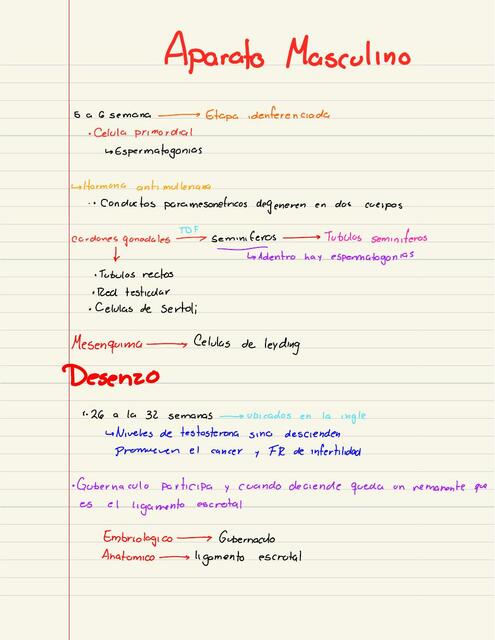 Aparato Masculino
5 a 6 semana → Etapa idenferenciada
• Celula primordial
↳ Espermatogonias
↳ Hormona antimulleriana
•• Conductos paramesonefricos degeneren en dos cuerpos
TDF
cordones gonadales → seminiferos → Tubulos seminiferos
↳ Adentro hay espermatogonias
• Tubulos rectos
• Red testicular
• Celulas de sertoli
Mesenquima → Celulas de leyding
Desenzo
• 26 a la 32 semanas → ubicados en la ingle
↳ Niveles de testosterona sino descienden
promueven el cancer y FR de infertilidad
• Gubernaculo participa y cuando deciende queda un remanente que
es el ligamento escrotal
Embriologico → Gubernaculo
Anatomico → ligamento escrotal